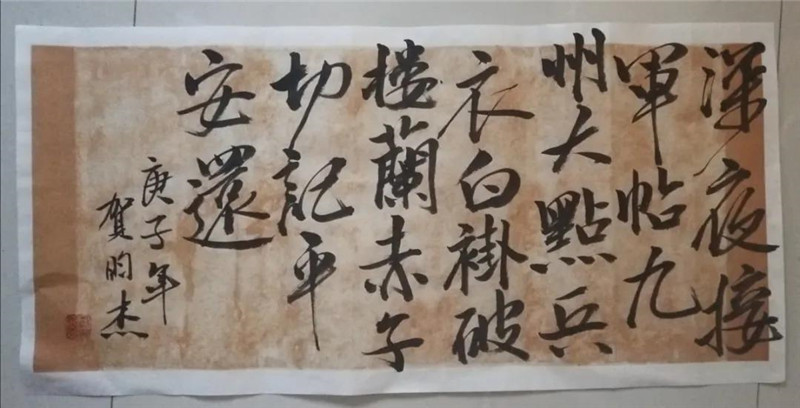 深夜接
軍帖九
州大點兵
衣白褂破
楼蘭赤子
切記平
安還
庚子年
賀昀杰